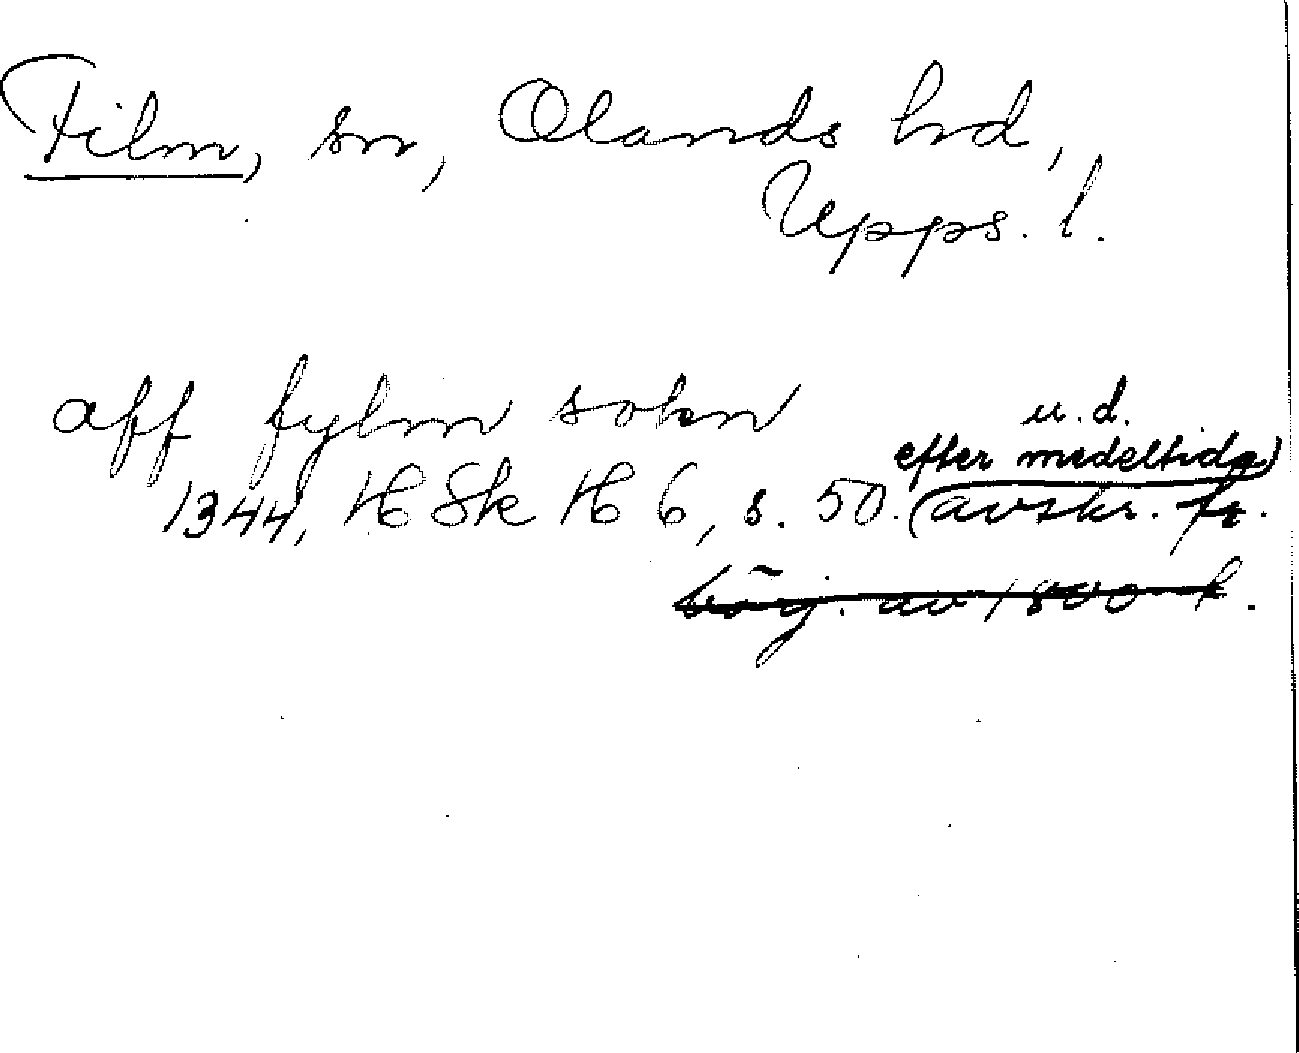 Film, sn, Olands hd,
Upps. l.
aff fylm sokn
u.d.
efter medeltida)
1344, H Sk H 6, s. 50. (avskr. fr.
börj. av 1800-t.